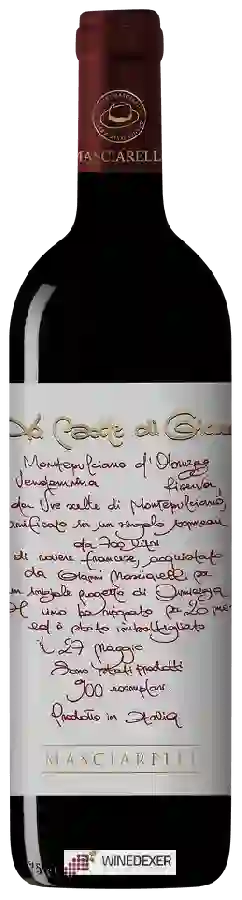 MASCIARELLI
La Botte di Gianni
Montepulciano d'Abruzzo
Vendemmia Riserva
da Uve scelte di Montepulciano,
vinificato in un singolo tonneau
da 700 litri
di rovere francese, acquistato
da Gianni Masciarelli per
un iniziale progetto di
uno ha riposato per 20 mesi
ed è stato imbottigliato
il 27 Maggio
Sono stati prodotti
900 esemplari
Prodotto in Italia
MASCIARELLI
WINEDEXER